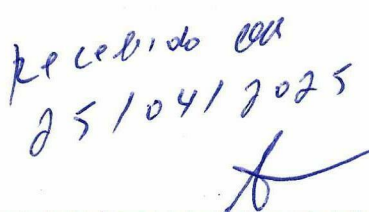 Recebido em
25/04/2025